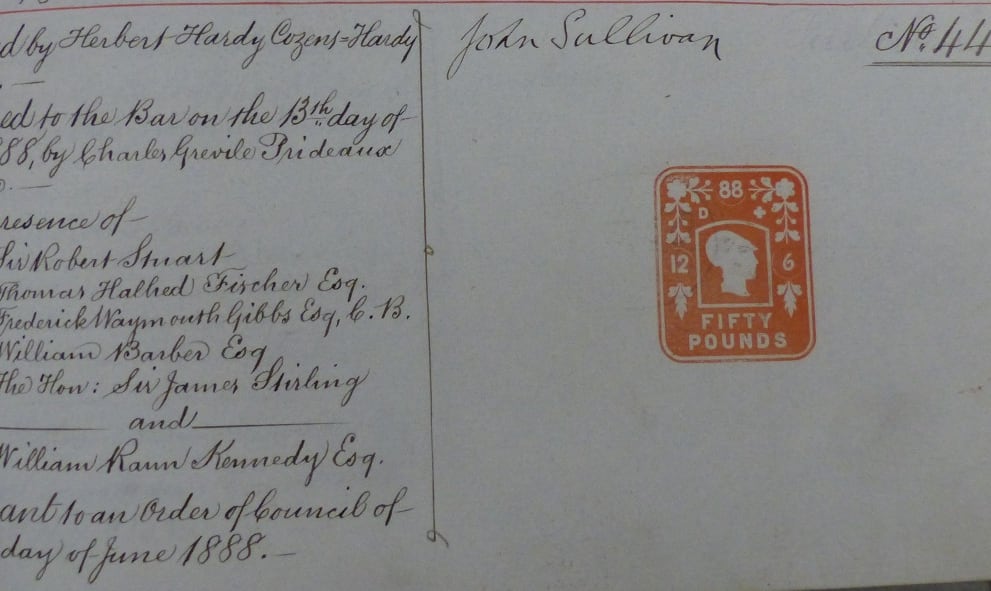 ed by Herbert Hardy Cozens-Hardy
ed to the Bar on the 13th day of
88, by Charles Grevile Prideaux
resence of
Sir Robert Stuart
Thomas Halhed Fischer Esq.
Frederick Waymouth Gibbs Esq, C. B.
William Barber Esq
The Hon: Sir James Stirling
and
William Rann Kennedy Esq.
ant to an Order of Council of
day of June 1888.
John Sullivan
No. 44
88
D
12 6
FIFTY
POUNDS